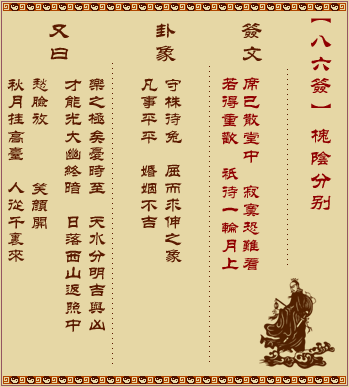 【八六簽】 槐陰分别
簽文
席已散堂中 寂寞恐難看
若得重歡 祇待一輪月上
卦象
守株待兔 屈而求伸之象
凡事平平 婚姻不吉
又曰
樂之極矣憂時至 天水分明吉與凶
才能光大幽終暗 日落西山返照中
愁臉放 笑顏開
秋月挂高臺 人從千裏來